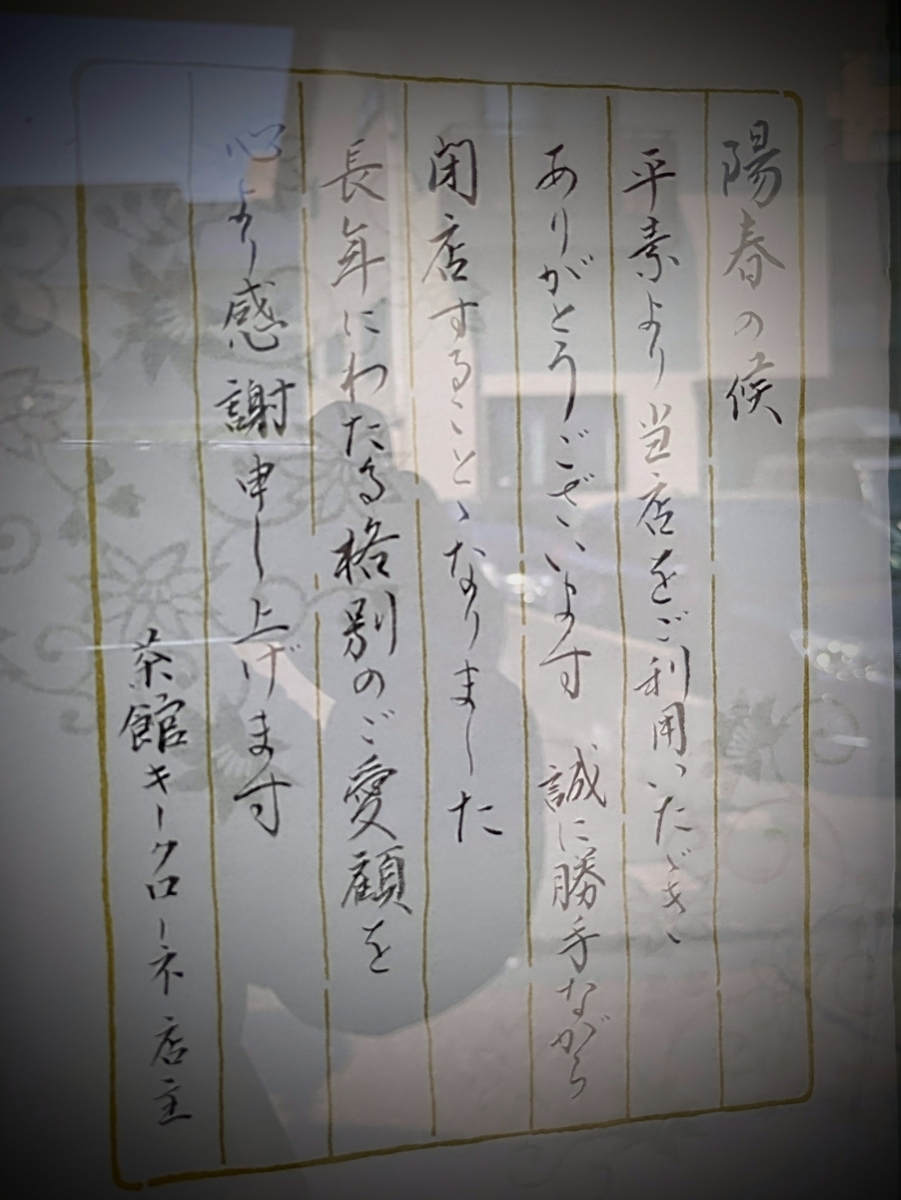 陽春の候
平素より当店をご利用いただき、
ありがとうございます 誠に勝手ながら
閉店することゝなりました
長年にわたる格別のご愛顧を
心より感謝申し上げます
茶館キークローネ 店主